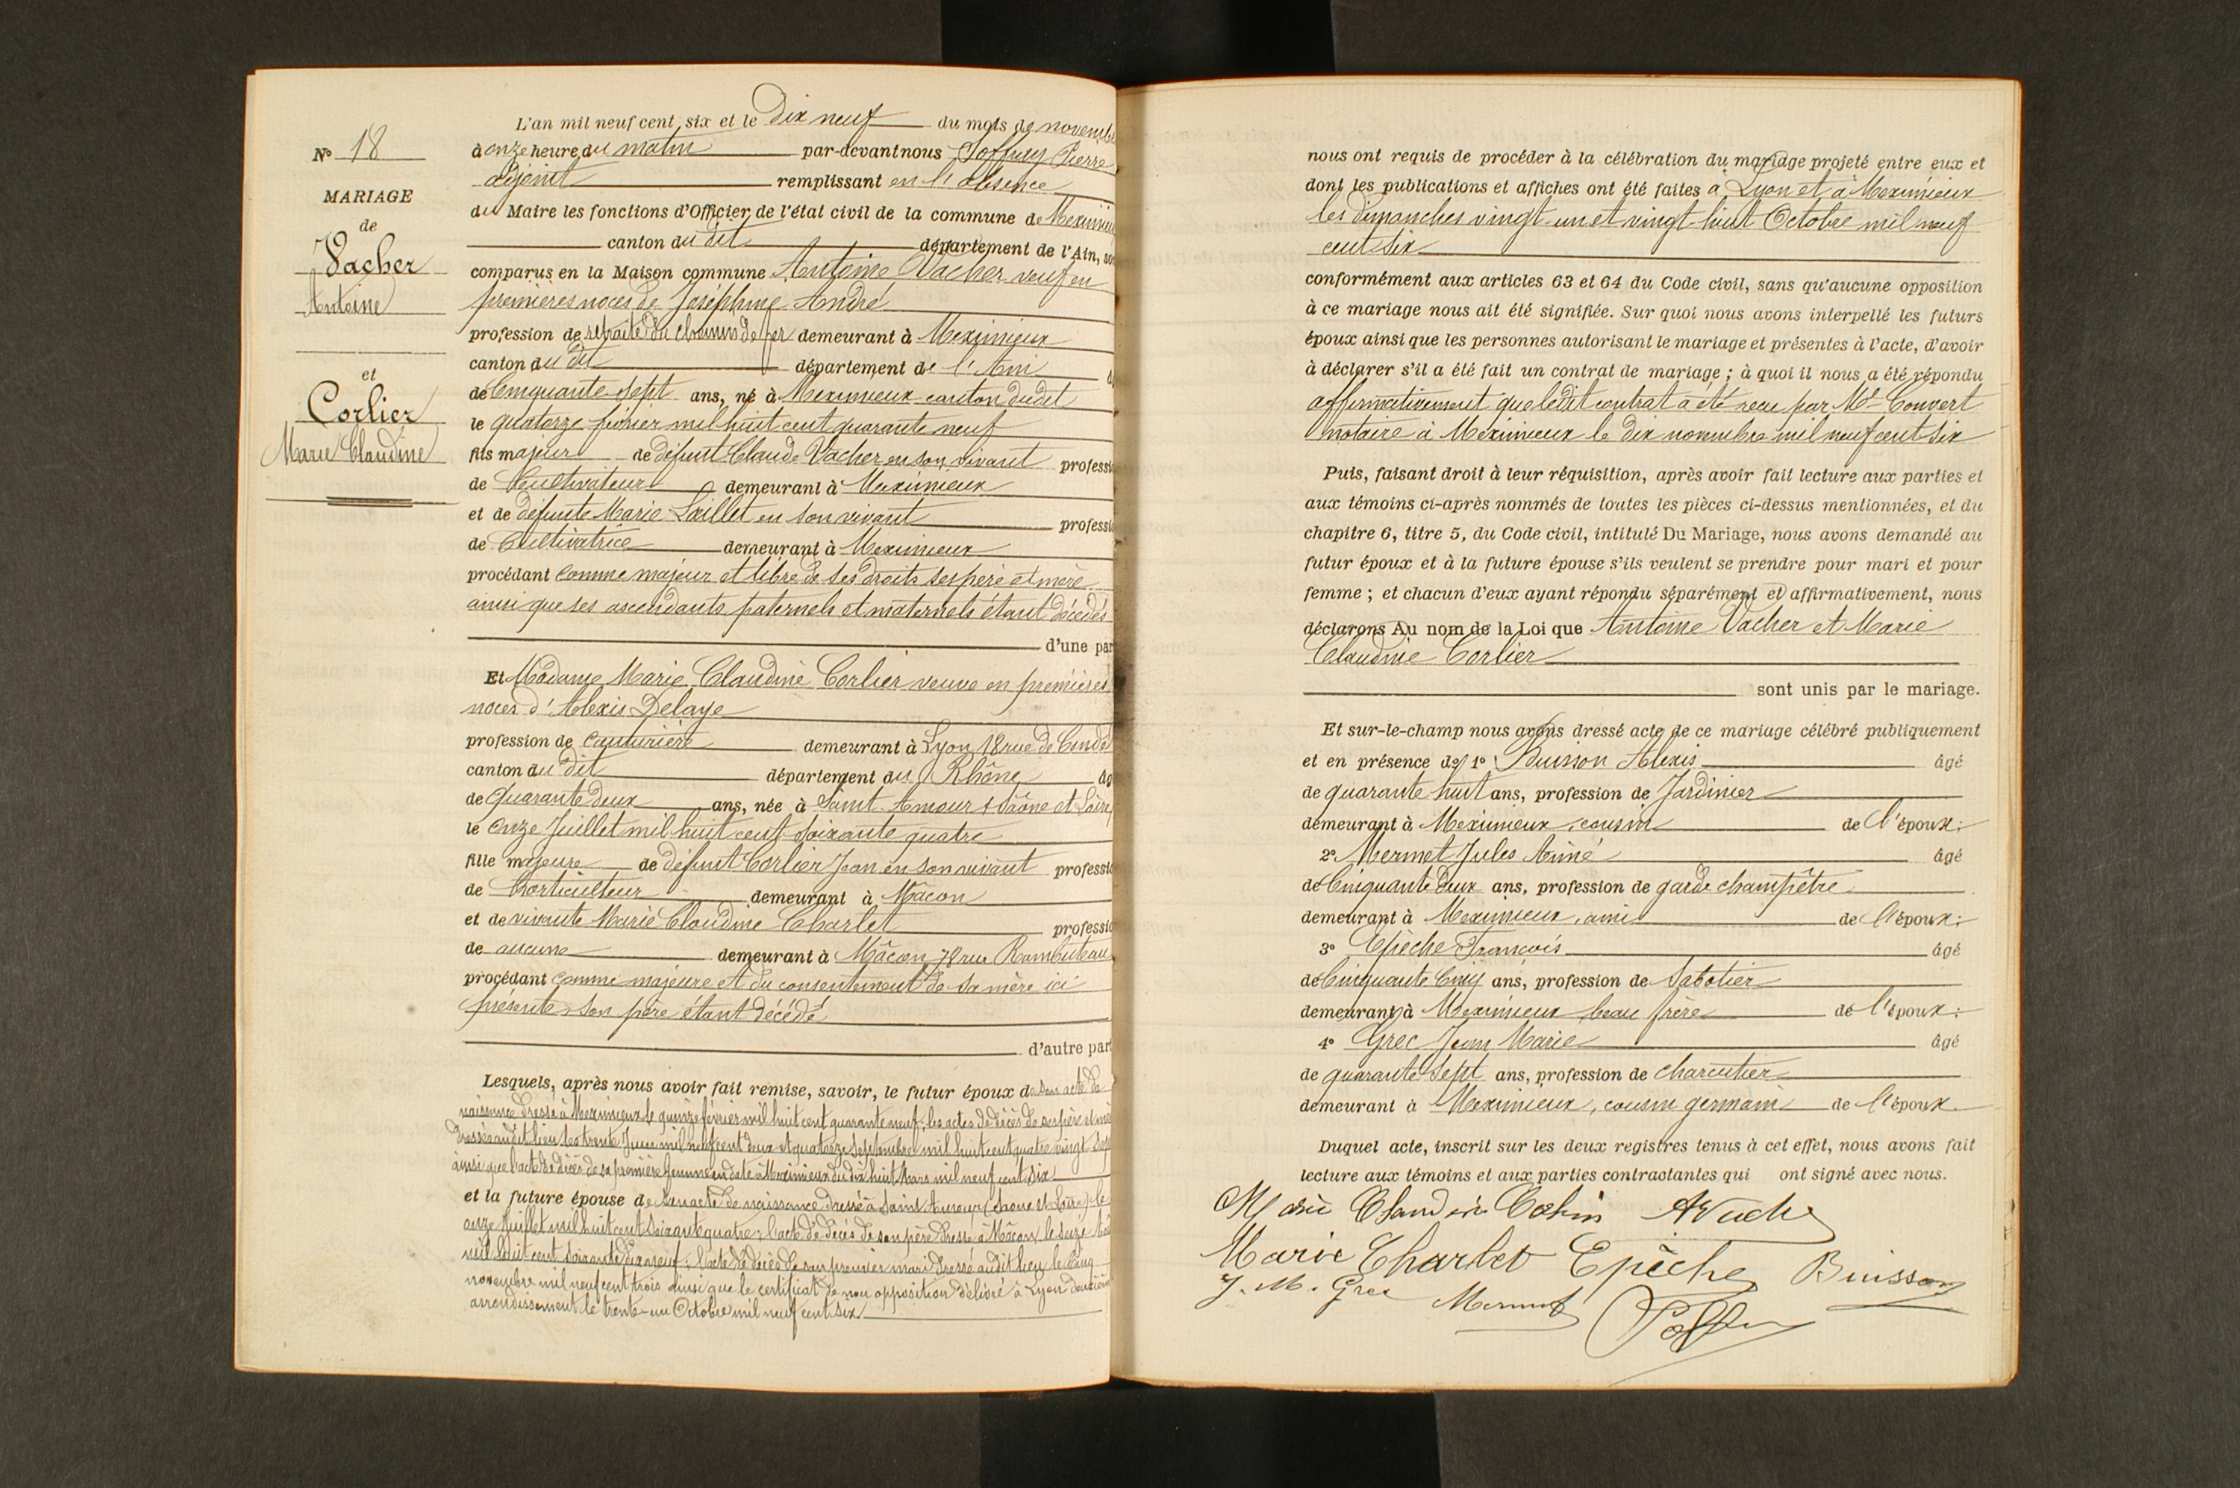 N° 18
MARIAGE
de
Vacher
Antoine
et
Corlier
Marie Claudine
L'an mil neuf cent six et le Dix neuf du mois de novembre
à onze heure du matin par-devant nous Pierre
adjoint remplissant en l'absence
du Maire les fonctions d'Officier de l'état civil de la commune de Meximieux
canton du dit département de l'Ain, sont
comparus en la Maison commune Antoine Vacher veuf en
premières noces de Joséphine André
profession de retraité du chemin de fer demeurant à Meximieux
canton du dit département de l'Ain
de Cinquante-sept ans, né à Meximieux canton dudit
le quatorze février mil huit cent quarante neuf
fils majeur de défunt Claude Vacher en son vivant professi
de Cultivateur demeurant à Meximieux
et de défunte Marie en son vivant professi
de Cultivatrice demeurant à Meximieux
procédant comme majeur et libre de ses droits ses père et mère
ainsi que ses ascendants paternels et maternels étant décédés
d'une par
Et Madame Marie Claudine Corlier veuve en premières
noces d'Alexis Delaye
profession de couturière demeurant à Lyon 18 rue de Condé
canton du dit département du Rhône âg
de Quarante deux ans, née à Saint-Amour (Saône et Loire)
le onze Juillet mil huit cent soixante quatre
fille majeure de défunt Corlier Jean en son vivant professio
de Horticulteur demeurant à Mâcon
et de vivante Marie Claudine Charlet professio
de aucune demeurant à Mâcon, 78 rue Rambuteau
procédant comme majeure et du consentement de sa mère ici
présente, son père étant décédé
d'autre part
Lesquels, après nous avoir fait remise, savoir, le futur époux de son acte de
naissance dressé à Meximieux le quinze février mil huit cent quarante neuf, les actes de décès de ses père et mère
dressés audit lieu les trente Juin mil neuf cent deux et quatorze Septembre mil huit cent quatre vingt sept
ainsi que l'acte de décès de sa première femme en date à Meximieux du dix huit Mars mil neuf cent six
et la future épouse de son acte de naissance dressé à Saint Amour (Saône et Loire) le
onze Juillet mil huit cent soixante quatre, l'acte de décès de son père dressé à Mâcon le seize
mil huit cent soixante dix neuf, l'acte de décès de son premier mari dressé audit lieu le cinq
novembre mil neuf cent trois ainsi que le certificat de non opposition délivré à Lyon deuxième
arrondissement le trente-un Octobre mil neuf cent six
nous ont requis de procéder à la célébration du mariage projeté entre eux et
dont les publications et affiches ont été faites à Lyon et à Meximieux
les dimanches vingt-un et vingt-huit Octobre mil neuf
cent six
conformément aux articles 63 et 64 du Code civil, sans qu'aucune opposition
à ce mariage nous ait été signifiée. Sur quoi nous avons interpellé les futurs
époux ainsi que les personnes autorisant le mariage et présentes à l'acte, d'avoir
à déclarer s'il a été fait un contrat de mariage ; à quoi il nous a été répondu
affirmativement que ledit contrat a été recu par Me Convert
notaire à Meximieux le dix novembre mil neuf cent six
Puis, faisant droit à leur réquisition, après avoir fait lecture aux parties et
aux témoins ci-après nommés de toutes les pièces ci-dessus mentionnées, et du
chapitre 6, titre 5, du Code civil, intitulé Du Mariage, nous avons demandé au
futur époux et à la future épouse s'ils veulent se prendre pour mari et pour
femme ; et chacun d'eux ayant répondu séparément et affirmativement, nous
déclarons Au nom de la Loi que Antoine Vacher et Marie
Claudine Corlier
sont unis par le mariage.
Et sur-le-champ nous avons dressé acte de ce mariage célébré publiquement
et en présence de 1° Buisson Alexis âgé
de quarante huit ans, profession de Jardinier
demeurant à Meximieux, cousin de l'époux :
2° Mermet Jules Aimé âgé
de Cinquante deux ans, profession de garde champêtre
demeurant à Meximieux, ami de l'époux :
3° Epèche François âgé
de Cinquante Cinq ans, profession de Sabotier
demeurant à Meximieux beau frère de l'époux :
4° Grec Jean Marie âgé
de quarante sept ans, profession de charcutier
demeurant à Meximieux, cousin germain de l'époux
Duquel acte, inscrit sur les deux registres tenus à cet effet, nous avons fait
lecture aux témoins et aux parties contractantes qui ont signé avec nous.
Marie Claudine AVacher
Marie Charlet Epèche Buisson
J. M. Grec Mermet